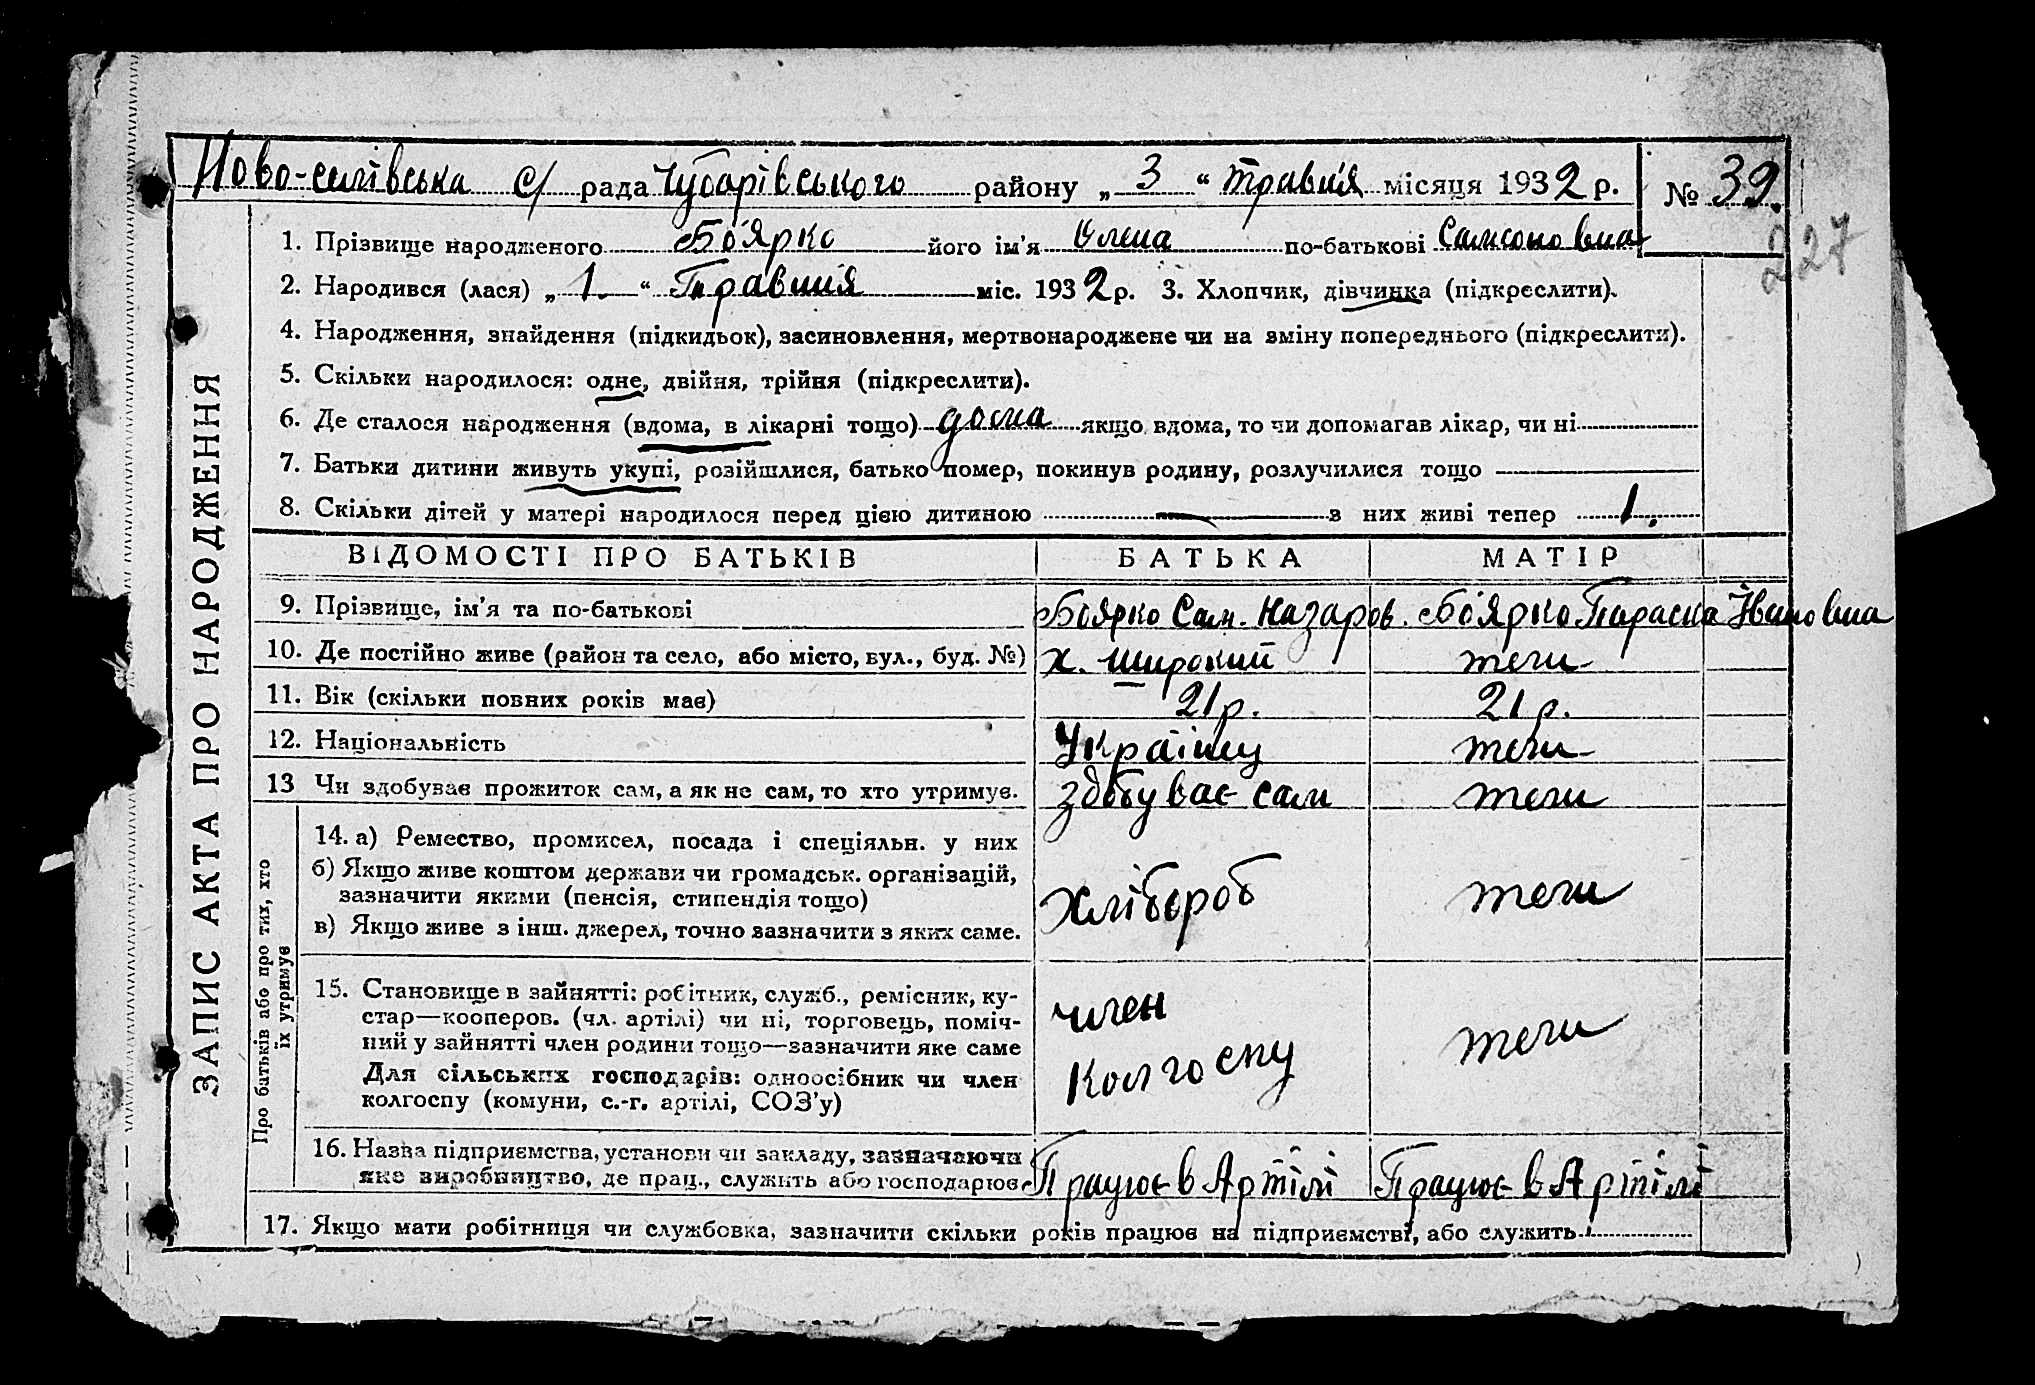 Ново-селівська с/ рада Чубарівського району „ 3 “ травня місяця 1932 р. № 39.
227
1. Прізвище народженого Боярко його ім'я Олена по-батькові Самсоновна
2. Народився (лася) „ 1. “ Травня міс. 1932 р. 3. Хлопчик, дівчинка (підкреслити).
4. Народження, знайдення (підкидьок), засиновлення, мертвонароджене чи на зміну попереднього (підкреслити).
5. Скільки народилося: одне, двійня, трійня (підкреслити).
6. Де сталося народження (вдома, в лікарні тощо) дома якщо вдома, то чи допомагав лікар, чи ні
7. Батьки дитини живуть укупі, розійшлися, батько помер, покинув родину, розлучилися тощо
8. Скільки дітей у матері народилося перед цією дитиною — з них живі тепер 1.
ЗАПИС АКТА ПРО НАРОДЖЕННЯ
ВІДОМОСТІ ПРО БАТЬКІВ БАТЬКА МАТІР
9. Прізвище, ім'я та по-батькові Боярко Сам. Назаров. Боярко Параска Івановна
10. Де постійно живе (район та село, або місто, вул., буд. №) х. Широкий теж
11. Вік (скільки повних років має) 21 р. 21 р.
12. Національність Українц теж
13 Чи здобуває прожиток сам, а як не сам, то хто утримує. здобуває сам теж
Про батьків або про тих, хто
їх утримує
14. а) Ремество, промисел, посада і спеціяльн. у них
б) Якщо живе коштом держави чи громадськ. організацій,
зазначити якими (пенсія, стипендія тощо)
в) Якщо живе з інш. джерел, точно зазначити з яких саме.
Хлібороб теж
15. Становище в зайнятті: робітник, служб., ремісник, ку-
стар—кооперов. (чл. артілі) чи ні, торговець, поміч-
ний у зайнятті член родини тощо—зазначити яке саме
Для сільських господарів: одноосібник чи член
колгоспу (комуни, с.-г. артілі, СОЗ'у)
член
колгоспу
теж
16. Назва підприємства, установи чи закладу, зазначаючи
яке виробництво, де прац., служить або господарює
Працює в Артілі Працює в Артілі
17. Якщо мати робітниця чи службовка, зазначити скільки років працює на підприємстві, або служить